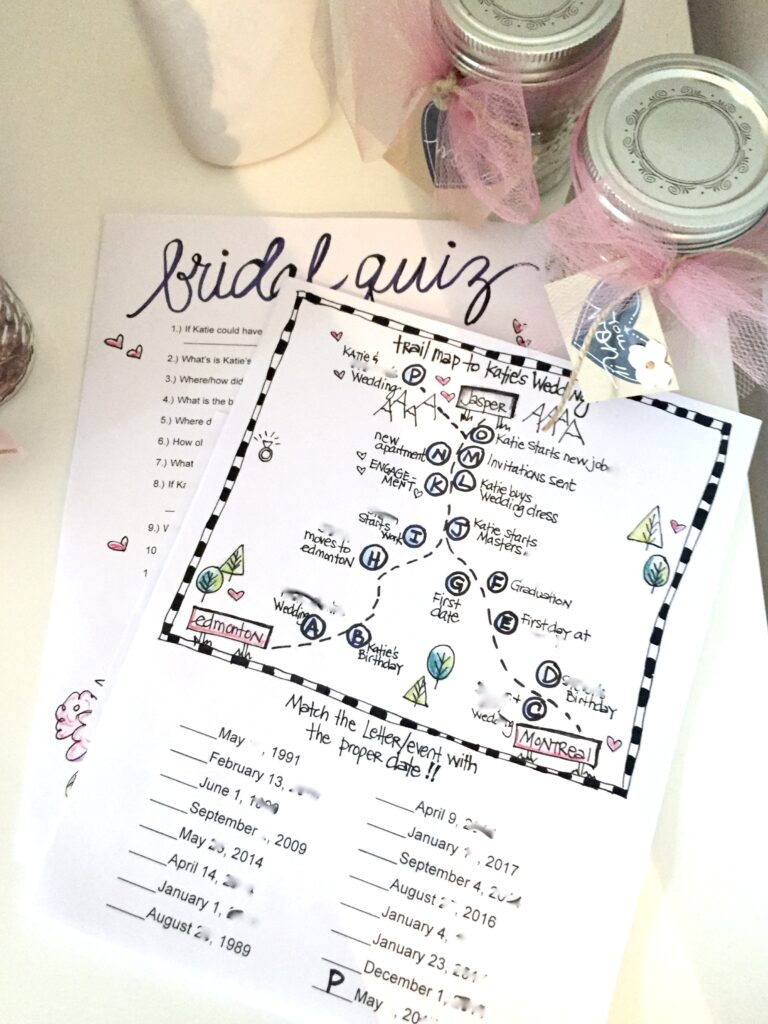 bridal quiz
1.) If Katie could have
2.) What's is Katie's
3.) Where/how did
4.) What is the b
5.) Where d
6.) How ol
7.) What
8.) If
9.)
10
1
trail map to Katie's Wedding
Katie &
Wedding
P
Jasper
O
Katie Starts new job
new
apartment
N
M
Invitations sent
ENGAGE-
MENT
K
L
Katie buys
Wedding dress
Starts
work
I
J
Katie starts
Masters
moves to
edmonton
H
G
First
date
F
Graduation
E
First day at
Wedding
A
B
Katie's
Birthday
D
Birthday
edmonton
Wedding
C
MONTREAL
Match the Letter/event with
the proper date!!
May , 1991
February 13,
June 1,
September , 2009
May , 2014
April 14,
January 1,
August 2 , 1989
April 9,
January , 2017
September 4,
August , 2016
January 4,
January 23,
December 1,
P May , 20